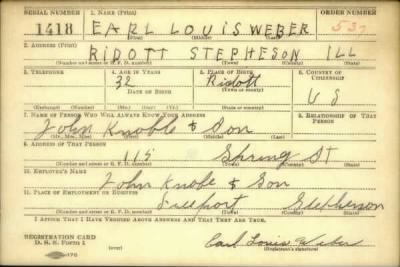 SERIAL NUMBER 1. NAME (Print)
1418 EARL LOUIS WEBER 537
(First) (Middle) (Last)
2. ADDRESS (Print)
RIDOTT STEPHESON ILL
(Number and street or R. F. D. number) (Town) (County) (State)
3. TELEPHONE 4. AGE IN YEARS 5. PLACE OF BIRTH 6. COUNTRY OF CITIZENSHIP
32 Ridott
DATE OF BIRTH (Town or county) U S
(Exchange) (Number) (Mo.) (Day) (Yr.) (State or country)
7. NAME OF PERSON WHO WILL ALWAYS KNOW YOUR ADDRESS 8. RELATIONSHIP OF THAT PERSON
John Knoble & Son
(Mr., Mrs., Miss) (First) (Middle) (Last)
9. ADDRESS OF THAT PERSON
115 Spring ST
(Number and street or R. F. D. number) (Town) (County) (State)
10. EMPLOYER'S NAME
John Knobe & Son
11. PLACE OF EMPLOYMENT OR BUSINESS
Freeport Stepherson
(Number and street or R. F. D. number) (Town) (County) (State)
I AFFIRM THAT I HAVE VERIFIED ABOVE ANSWERS AND THAT THEY ARE TRUE.
REGISTRATION CARD
D. S. S. Form 1 Earl Louis Weber
(Registrant's signature)